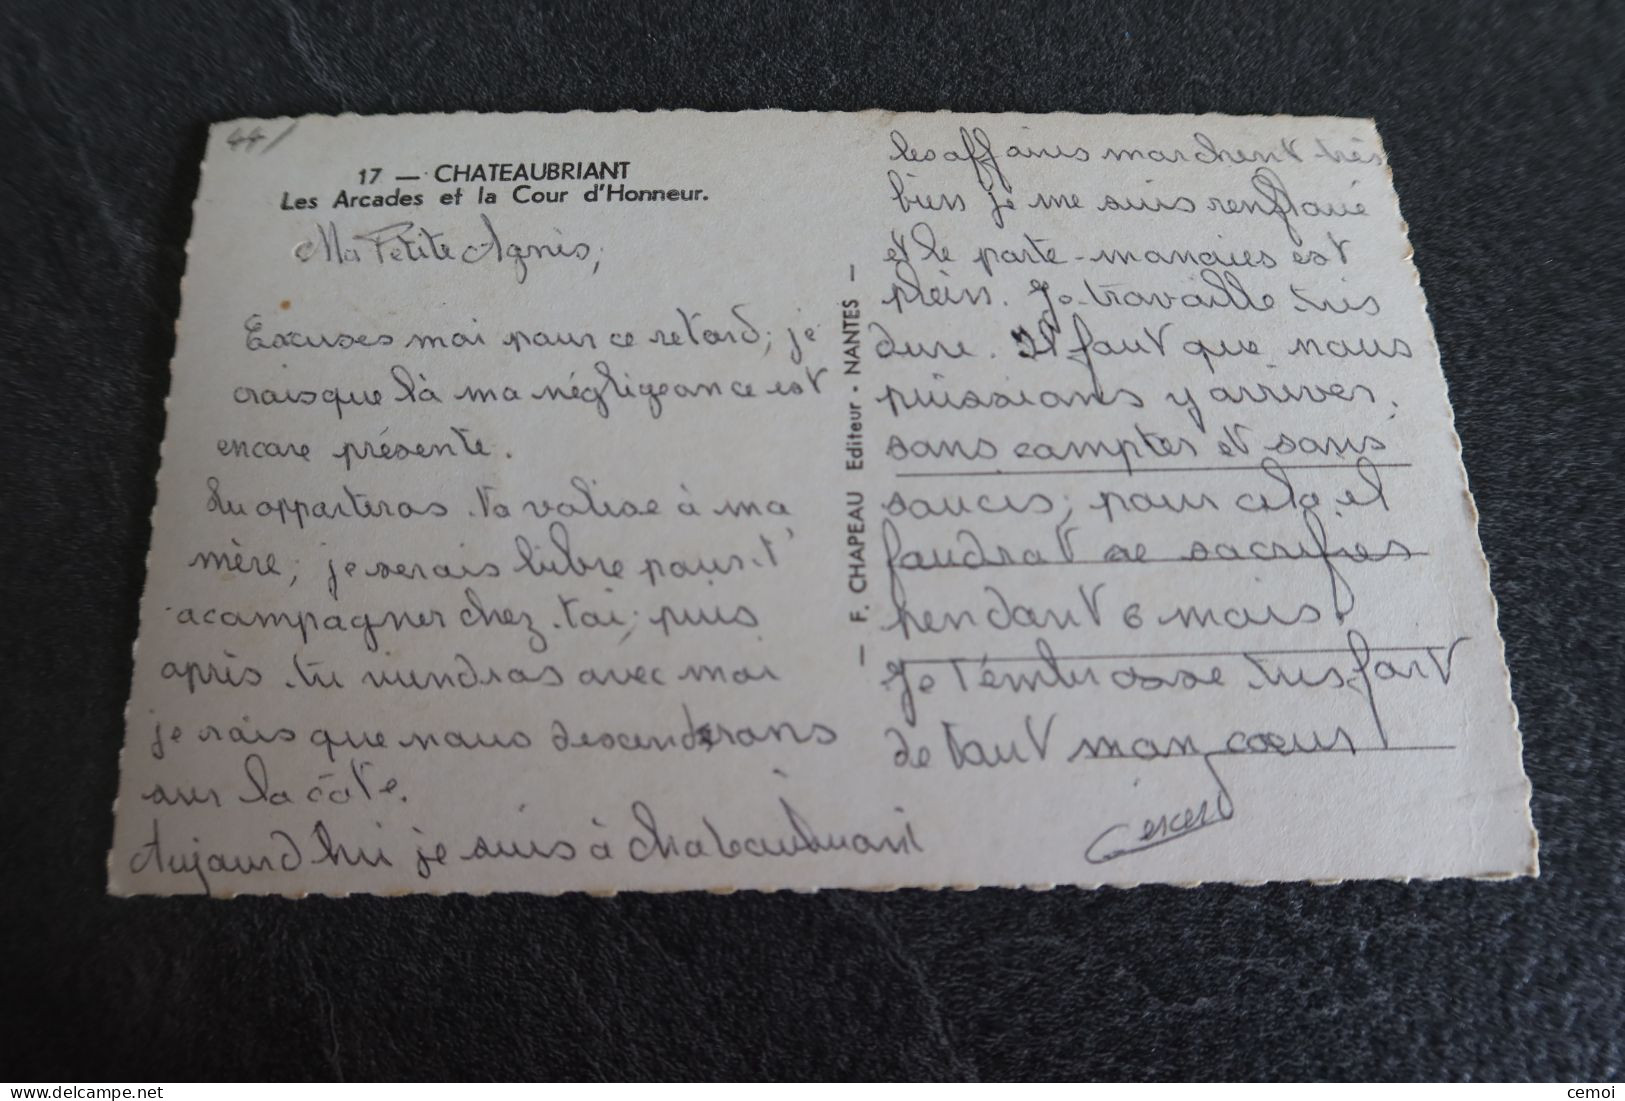 44/
17 — CHATEAUBRIANT
Les Arcades et la Cour d'Honneur.
Ma Petite Agnès,
Excuses moi pour ce retard, je
crois que là ma négligeance est
encore présente.
Tu apporteras ta valise à ma
mère, je serais libre pour t'
acompagner chez toi, puis
après tu viendras avec moi
je vois que nous descenderons
sur la côte.
Aujourd hui je suis à Chateaubriant
— F. CHAPEAU Editeur • NANTES —
les affaires marchent très
bien je me suis renfloué
et le porte-monaies est
plein. Je travaille très
dure. Il faut que nous
puissions y arriver,
sans compter et sans
soucis, pour cela il
faudrat se sacrifier
pendant 6 mois.
Je t'embrasse très fort
de tout mon cœur
cemoi